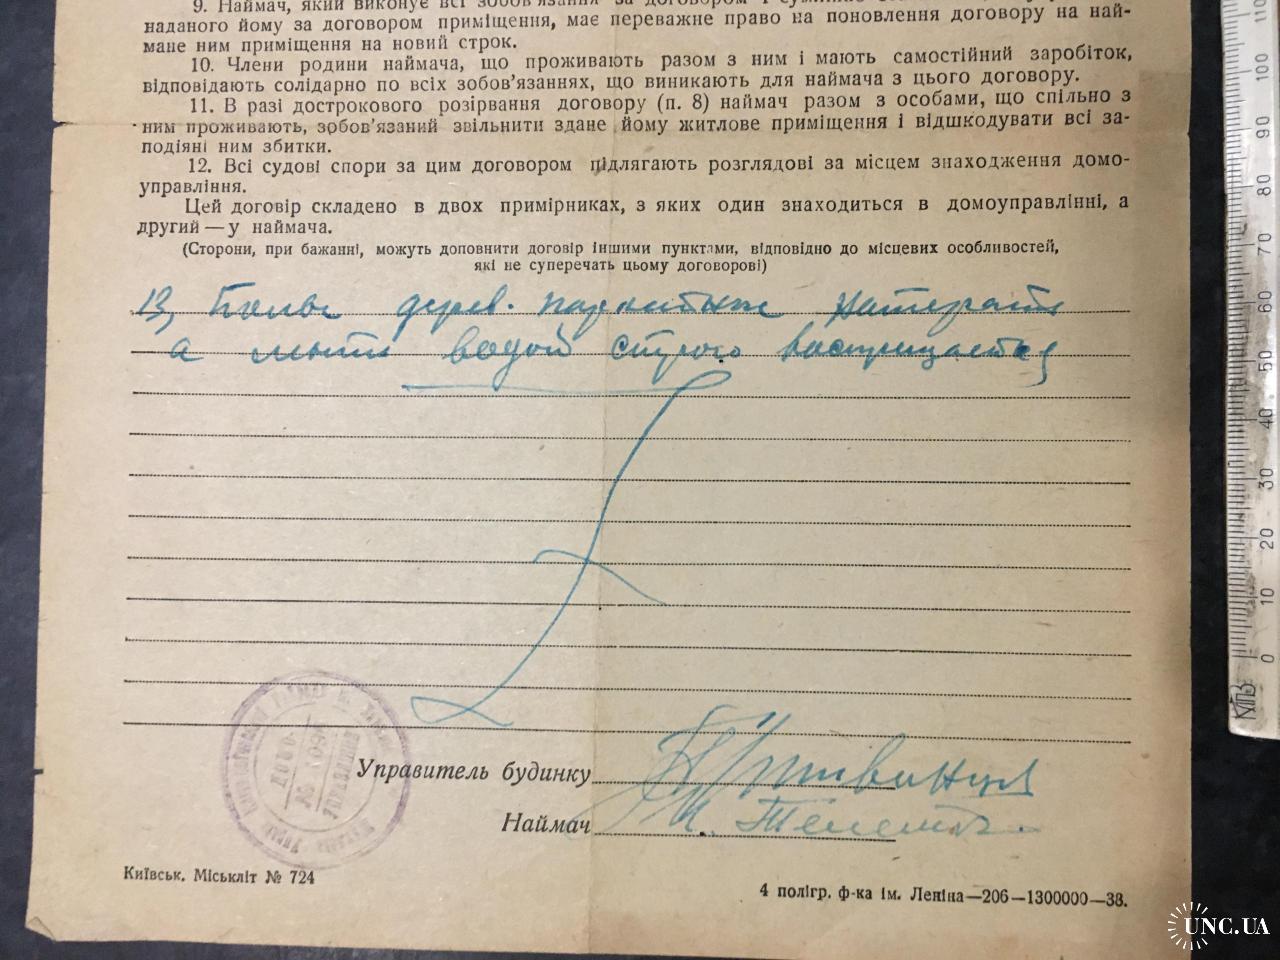 9. Наймач, який виконує всі зобов'язання за договором і
наданого йому за договором приміщення, має переважне право на поновлення договору на най-
мане ним приміщення на новий строк.
10. Члени родини наймача, що проживають разом з ним і мають самостійний заробіток,
відповідають солідарно по всіх зобов'язаннях, що виникають для наймача з цього договору.
11. В разі дострокового розірвання договору (п. 8) наймач разом з особами, що спільно з
ним проживають, зобов'язаний звільнити здане йому житлове приміщення і відшкодувати всі за-
подіяні ним збитки.
12. Всі судові спори за цим договором підлягають розглядові за місцем знаходження домо-
управління.
Цей договір складено в двох примірниках, з яких один знаходиться в домоуправлінні, а
другий — у наймача.
(Сторони, при бажанні, можуть доповнити договір іншими пунктами, відповідно до місцевих особливостей,
які не суперечать цьому договорові)
13, дерев. натерать
а мыть водой строго
Управитель будинку
Наймач
Київськ. Міськліт № 724
4 полігр. ф-ка ім. Леніна—206—1300000—38.
0 10 20 30 40 50 60 70 80 90 100 110
UNC.UA